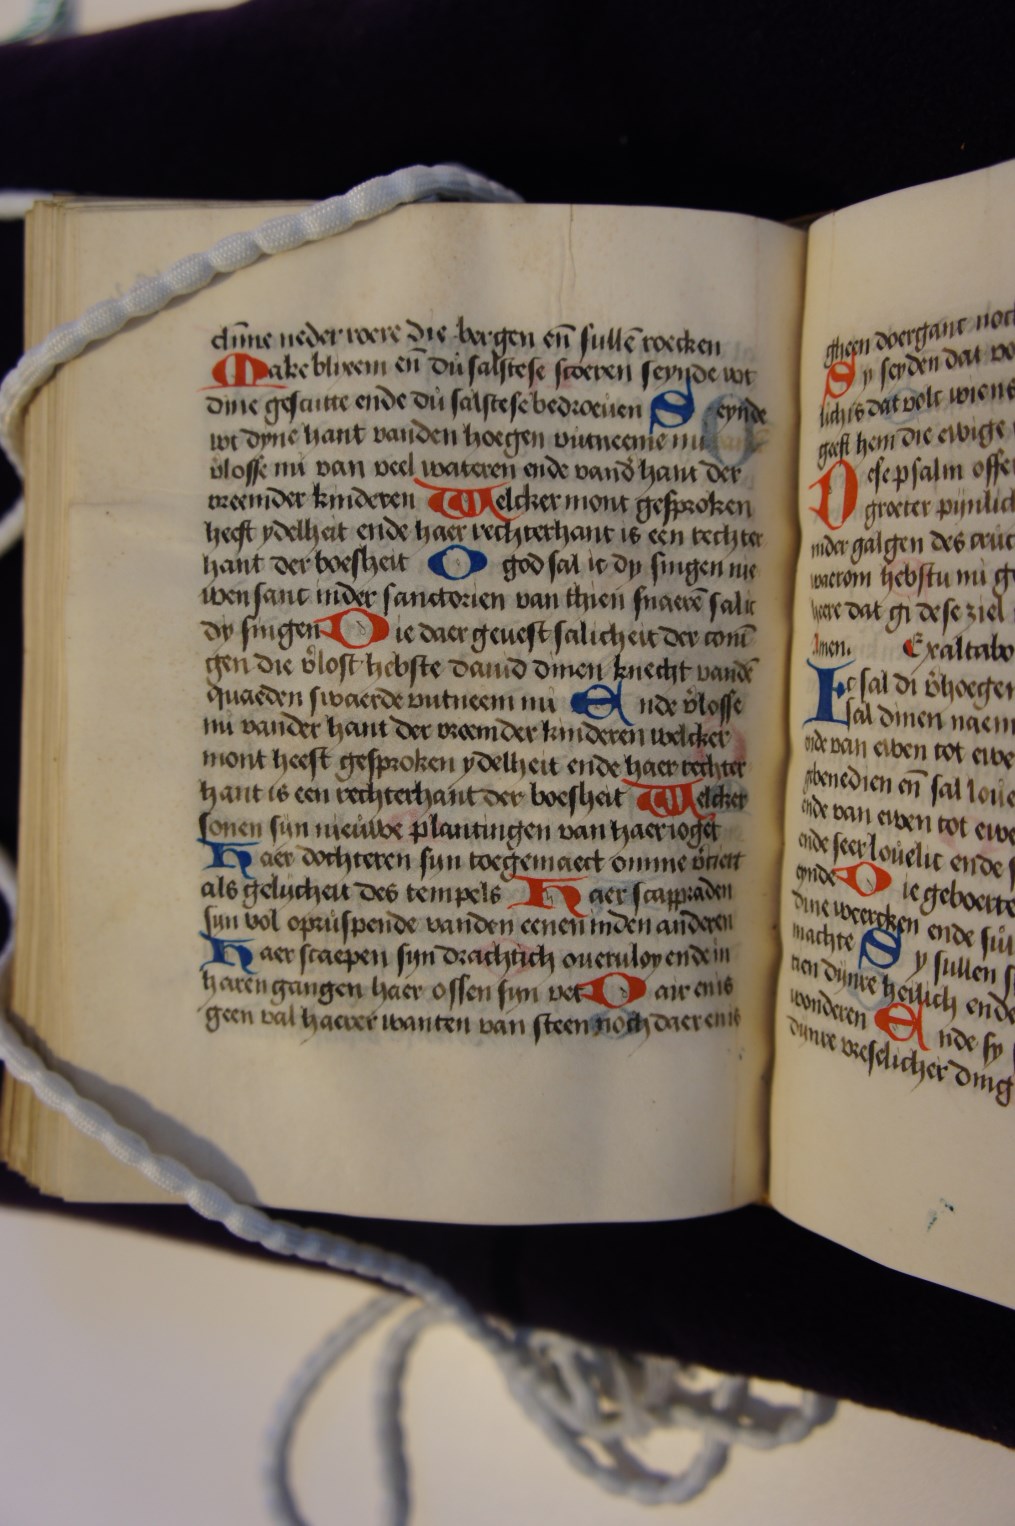 clime neder roere die bergen en̄ sullē roecken
Make blixem en̄ dū salstese stoeren seynde wt
dine gescutte ende dū salstese bedroeuen Seynde
wt dyne hant vanden hoegen vutneeme nu
v̄losse nu van veel wateren ende vand̄ hant der
vreemder kinderen Welcker mont gesproken
heeft ydelheit ende haer rechterhant is een rechter
hant der boesheit O god sal ic dy singen nie
wen sanc inder sanctorien van thien snaerē sal ic
dy singen Die daer geuest salicheit der coni
gen die v̄lost hebste dauid dinen knecht vandē
quaeden swaerde vutneem nu Ende v̄losse
nu vander hant der vreemder kinderen welcker
mont heeft gesproken ydelheit ende haer rechter
hant is een rechterhant der boesheit Welcker
sonen syn nieuwe plantingen van haer ioget
Haer dochteren syn toegemaect omme v̄ciert
als gelycheit des tempels Haer scappraden
syn vol oprūspende vanden eenen inden anderen
Haer scaepen syn drachtich oueruloyende in
haren gangen haer ossen syn vet Dair en is
geen val haerer wanten van steen noch daer enis
gheen doergant noch
Sy seyden dat
lich is dat volc wiens
geeft hem die ewige
Dese psalm offe
groeter pynlic
inder galgen des cruc
waerom hebstu mi
heere dat gi dese ziel
Amen. Exaltabo
Ic sal di v̄hoegen
sal dinen naem
ende van ewen tot ewe
gebenedien en̄ sal loue
ende van ewen tot ewe
ende seer louelic ende
eynde Die geboerte
dine wercken ende
machte Sy sullen
heilich ende
wonderen Ende sy
dynre vreselicher ding